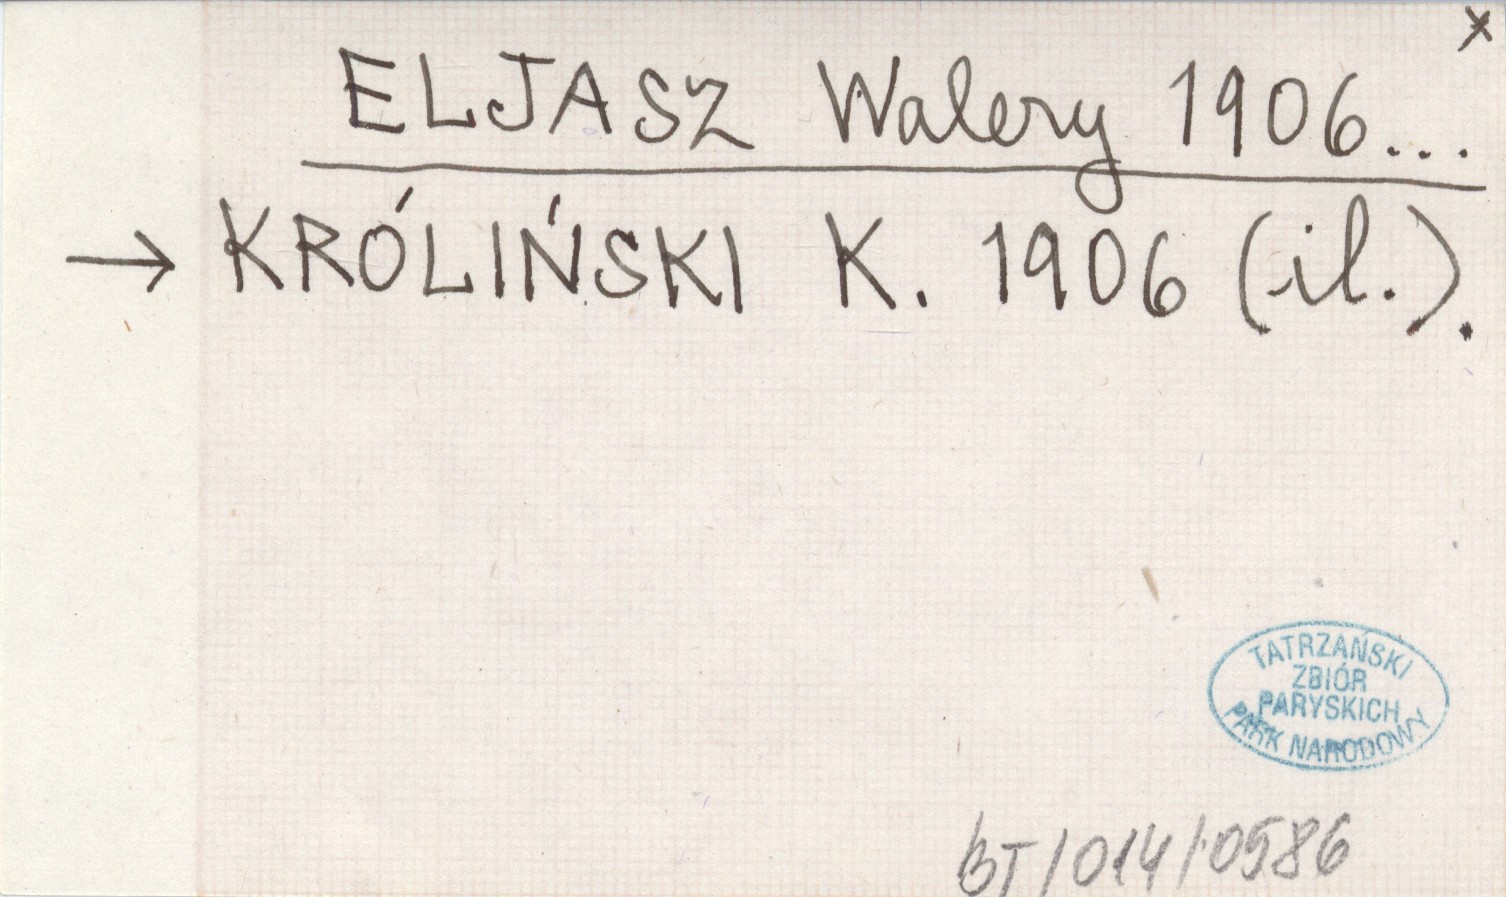 x
ELJASZ Walery 1906...
→ KRÓLIŃSKI K. 1906 (il.).
TATRZAŃSKI
ZBIÓR
PARYSKICH
PARK NARODOWY
BT/014/0586